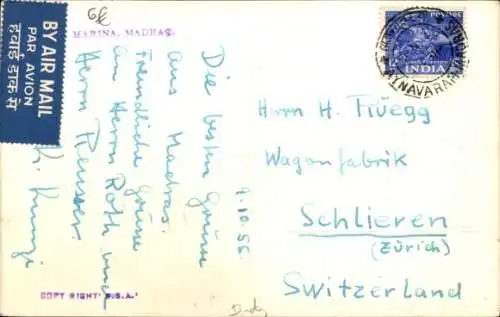 BY AIR MAIL
PAR AVION
हवाई डाक से
MARINA, MADRAS.
Die besten Grüsse
aus Madras.
Freundliche Grüsse
an Herrn Roth und
Herrn
K. Kunzi
7.10.56
COPY RIGHT "R.S.A."
POSTAGE
INDIA
AYNAVARAM
Herrn H. Rüegg
Wagonfabrik
Schlieren
(Zürich)
Switzerland